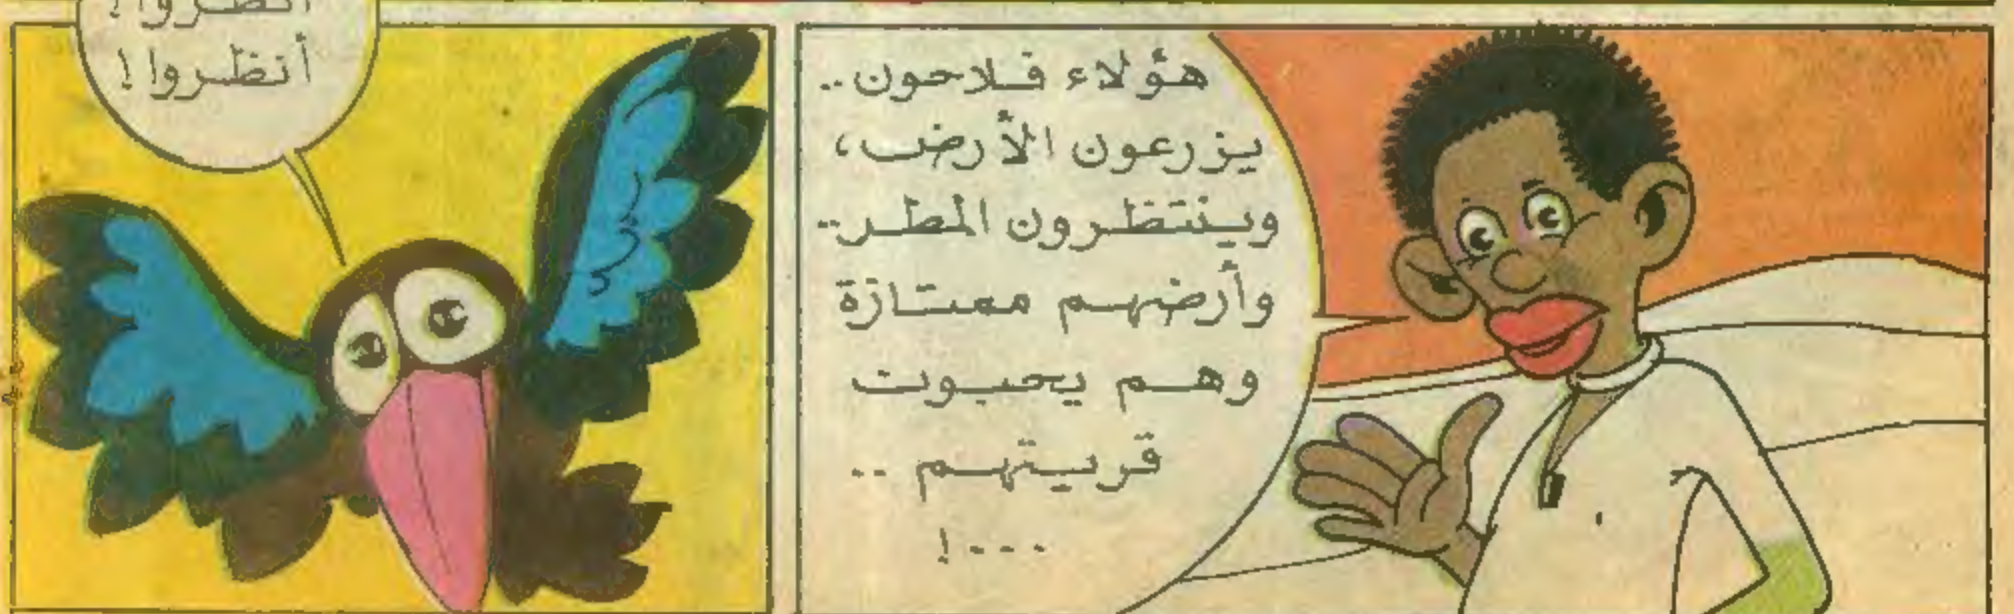 هؤلاء فلاحون..
يزرعون الأرض،
وينتظرون المطر..
وأرضهم ممتازة
وهم يحبون
قريتهم ..
...!
أنظروا!
أنظروا!